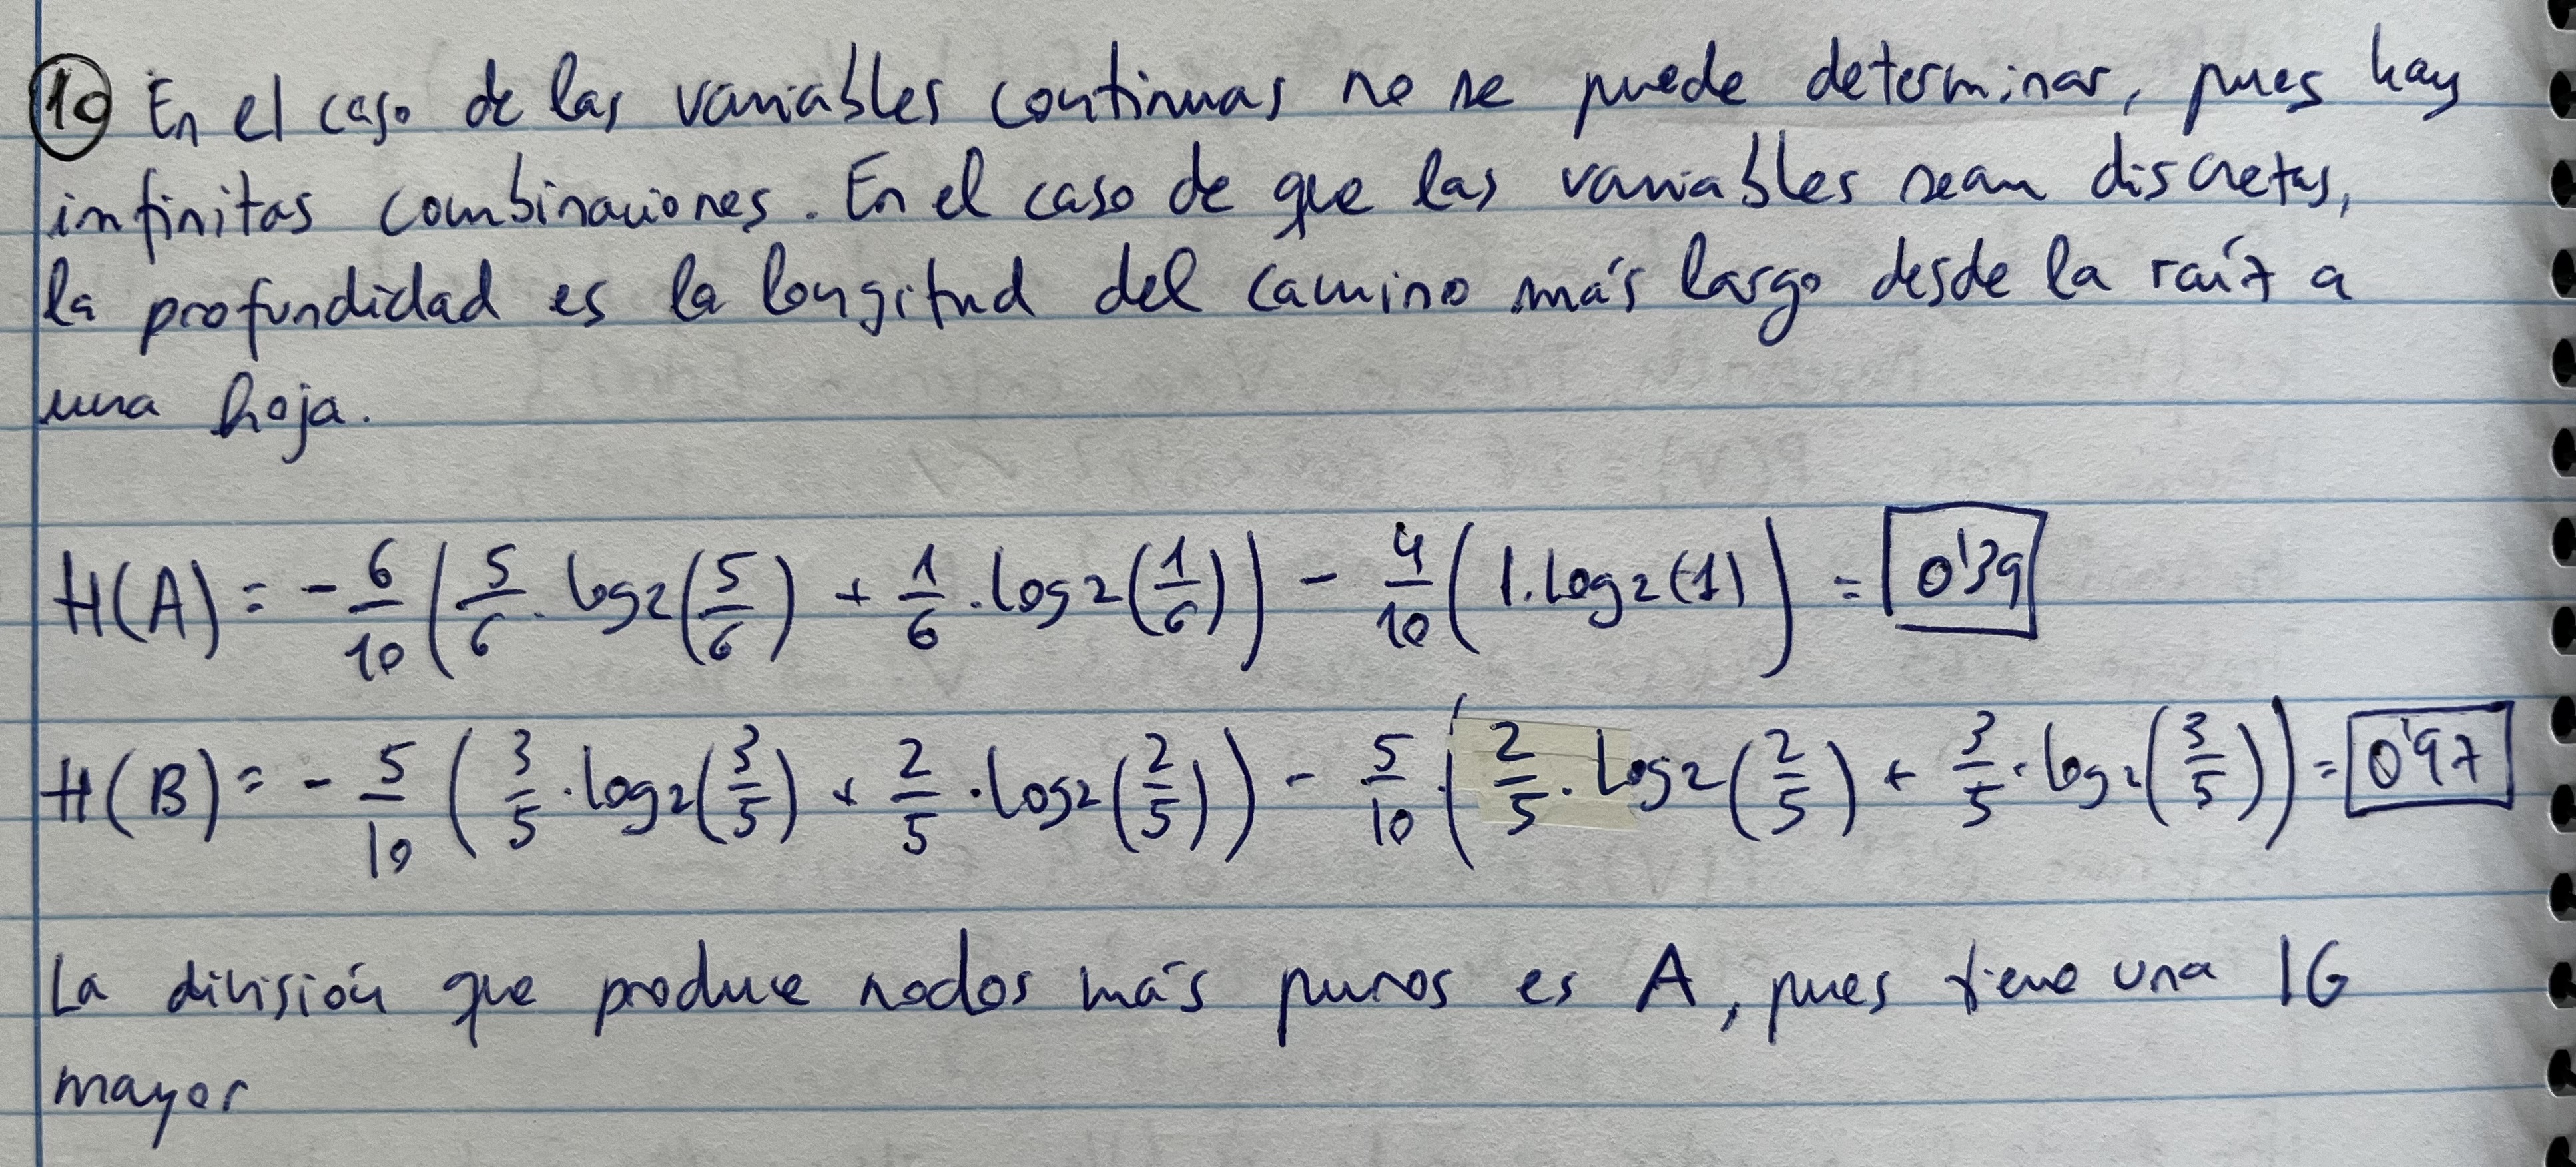 10 En el caso de las variables continuas no se puede determinar, pues hay
infinitas combinaciones. En el caso de que las variables sean discretas,
la profundidad es la longitud del camino más largo desde la raíz a
una hoja.
H(A) = - 6/10 (5/6 · log2(5/6) + 1/6 · log2(1/6)) - 4/10 (1 · log2(1)) = 0'39
H(B) = - 5/10 (3/5 · log2(3/5) + 2/5 · log2(2/5)) - 5/10 · (2/5 · log2(2/5) + 3/5 · log2(3/5)) = 0'97
La división que produce nodos más puros es A, pues tiene una IG
mayor